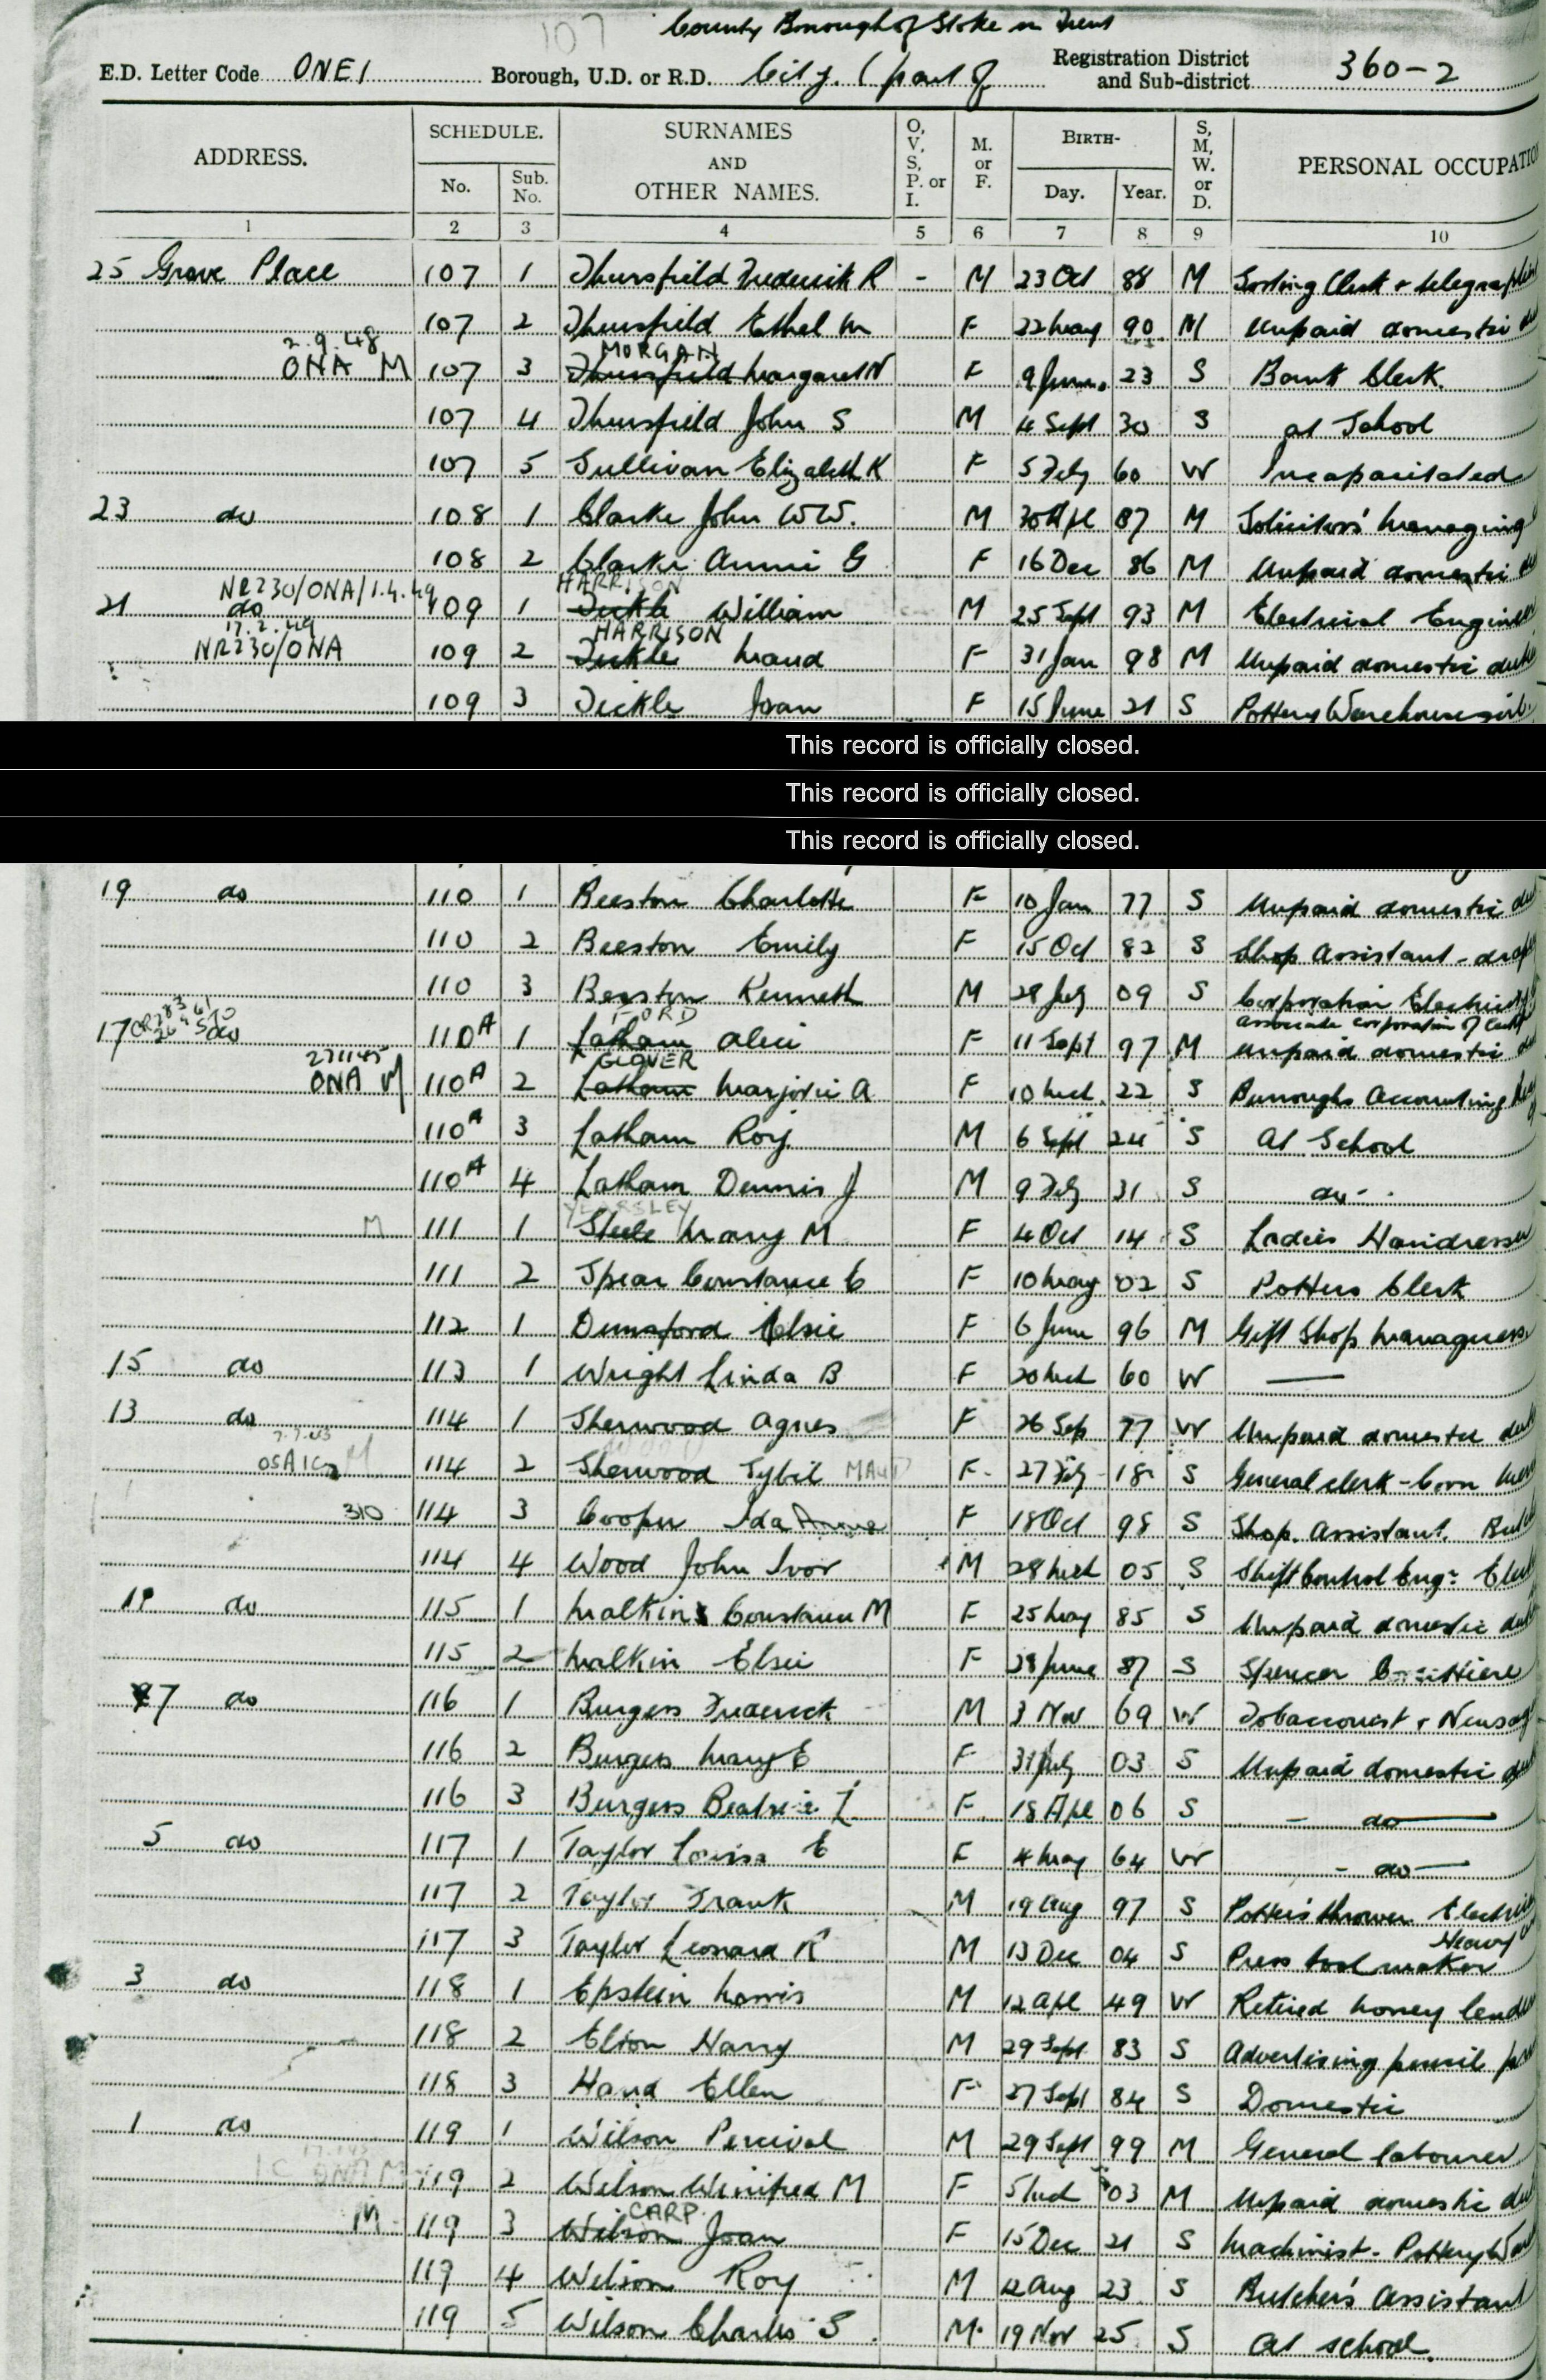 107
County Borough of Stoke on Trent
E.D. Letter Code ONE1 Borough, U.D. or R.D. City. (part of Registration District and Sub-district 360-2
ADDRESS. SCHEDULE. No. Sub. No. SURNAMES AND OTHER NAMES. O, V, S, P. or I. M. or F. BIRTH- Day. Year. S, M, W. or D. PERSONAL OCCUPATIO
1 2 3 4 5 6 7 8 9 10
25 Grove Place 107 1 Thursfield Frederick R - M 23 Oct 88 M Sorting Clerk + telegraphist
107 2 Thursfield Ethel M F 22 May 90 M Unpaid domestic du
2.9.48 MORGAN
ONA M 107 3 Thursfield Margaret N F 9 June 23 S Bank Clerk.
107 4 Thursfield John S M 4 Sept 30 S at School
107 5 Sullivan Elizabeth K F 5 Feby 60 W Incapacitated
23 do 108 1 Clarke John W W. M 30 Apl 87 M Solicitors' Managing
108 2 Clarke Annie G F 16 Dec 86 M Unpaid domestic du
NR230/ONA/1.4.49 HARRISON
21 do 109 1 Tickle William M 25 Sept 93 M Electrical Engineer
17.2.49 HARRISON
NR230/ONA 109 2 Tickle Maud F 31 Jan 98 M Unpaid domestic dutie
109 3 Tickle Joan F 15 June 21 S Pottery Warehouse girl.
This record is officially closed.
This record is officially closed.
This record is officially closed.
19 do 110 1 Beeston Charlotte F 10 Jan 77 S Unpaid domestic du
110 2 Beeston Emily F 15 Oct 82 S Shop Assistant - drap
110 3 Beeston Kenneth M 28 July 09 S Corporation Electricity
FORD
17 do 110A 1 Latham Alice F 11 Sept 97 M Unpaid domestic du
271145 GLOVER
ONA M 110A 2 Latham Marjorie A F 10 Mch 22 S Burroughs Accounting
110A 3 Latham Roy M 6 Sept 24 S At School
110A 4 Latham Dennis J M 9 Feby 31 S do
YEARSLEY
M 111 1 Steele Mary M F 4 Oct 14 S Ladies Hairdresser
111 2 Spear Constance E F 10 May 02 S Potters Clerk
112 1 Dunsford Elsie F 6 June 96 M Gift Shop Manageress
15 do 113 1 Wright Linda B F 20 Mch 60 W —
13 do 114 1 Sherwood Agnes F 26 Sep 77 W Unpaid domestic du
7.7.43 WOOD
OSA M 114 2 Sherwood Sybil MAUD F 27 Feby 18 S General clerk - Corn Mer
310 114 3 Cooper Ida Annie F 18 Oct 98 S Shop Assistant. Butch
114 4 Wood John Ivor M 28 Mch 05 S Shift Control Engr Elec
11 do 115 1 Malkin Constance M F 25 May 85 S Unpaid domestic du
115 2 Malkin Elsie F 28 June 87 S Spencer Corsetiere
7 do 116 1 Burgess Frederick M 3 Nov 69 W Tobacconist + Newsag
116 2 Burgess Mary E F 31 July 03 S Unpaid domestic du
116 3 Burgess Beatrice L F 18 Apl 06 S - do -
5 do 117 1 Taylor Louisa E F 4 May 64 W - do -
117 2 Taylor Frank M 19 Aug 97 S Potters thrower Electric
117 3 Taylor Leonard R M 13 Dec 04 S Press tool maker Heavy
3 do 118 1 Epstein Morris M 12 Apl 49 W Retired money lender
118 2 Elson Harry M 29 Sept 83 S Advertising pencil
118 3 Hand Ellen F 27 Sept 84 S Domestic
1 do 119 1 Wilson Percival M 29 Sept 99 M General labourer
ONA M 119 2 Wilson Winifred M F 5 Mch 03 M Unpaid domestic du
CARP
M 119 3 Wilson Joan F 15 Dec 21 S Machinist - Pottery
119 4 Wilson Roy M 12 Aug 23 S Butcher's Assistant
119 5 Wilson Charles S M 19 Nov 25 S At school.